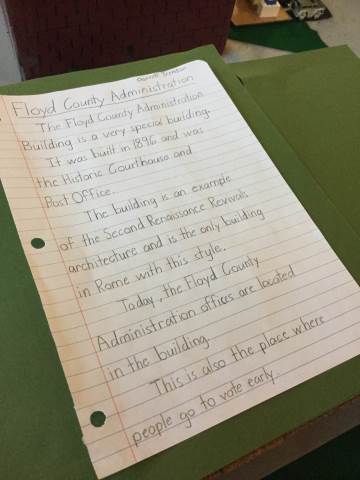 Floyd County Administration
The Floyd County Administration
Building is a very special building.
It was built in 1896 and was
the Historic Courthouse and
Post Office.
The building is an example
of the Second Renaissance Revival
architecture and is the only building
in Rome with this style.
Today, the Floyd County
Administration offices are located
in the building.
This is also the place where
people go to vote early.